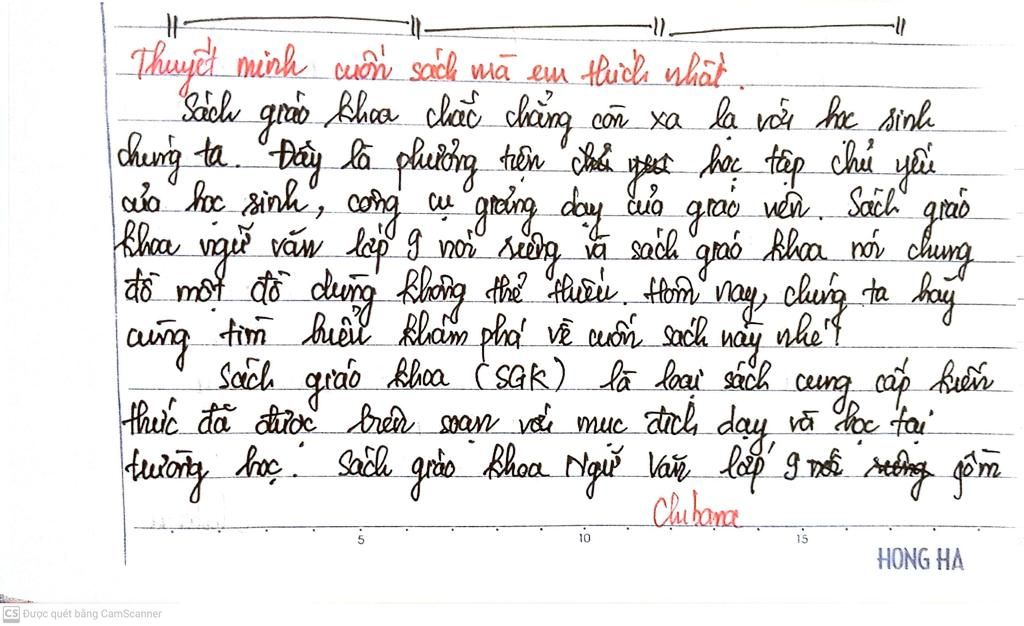 Thuyết minh cuốn sách mà em thích nhất.
Sách giáo khoa chắc chẳng còn xa lạ với học sinh
chúng ta. Đây là phương tiện học tập chủ yếu
của học sinh, công cụ giảng dạy của giáo viên. Sách giáo
khoa ngữ văn lớp 9 nói riêng và sách giáo khoa nói chung
đồ một đồ dùng không thể thiếu. Hôm nay, chúng ta hãy
cùng tìm hiểu khám phá về cuốn sách này nhé!
Sách giáo khoa (SGK) là loại sách cung cấp kiến
thức đã được biên soạn với mục đích dạy và học tại
trường học. Sách giáo khoa Ngữ Văn lớp 9 gồm
Chibana
5 10 15
HONG HA
CS Được quét bằng CamScanner